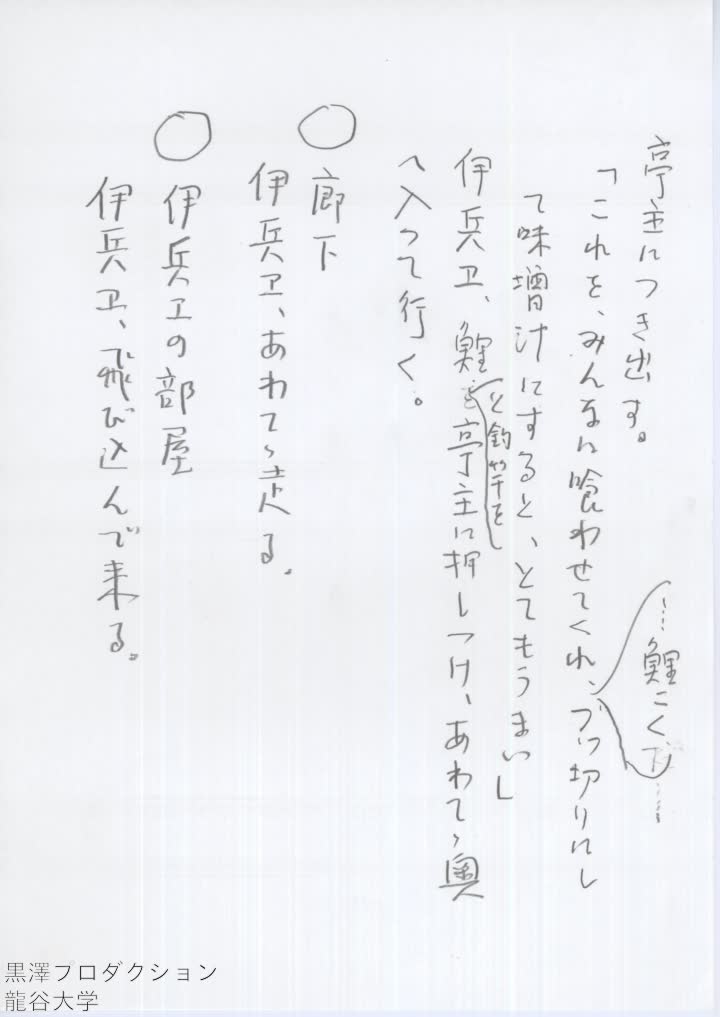 亭主につき出す。
「これを、みんなに喰わせてくれ、ブツ切りにし
…鯉こくだ……
て味増汁にすると、とてもうまい」
伊兵卫、鯉を亭主に押しつけ、あわてゝ奥
と釣竿を
へ入って行く。
○ 廊下
伊兵卫、あわてゝ走る。
○ 伊兵卫の部屋
伊兵卫、飛び込んで来る。
黒澤プロダクション
龍谷大学